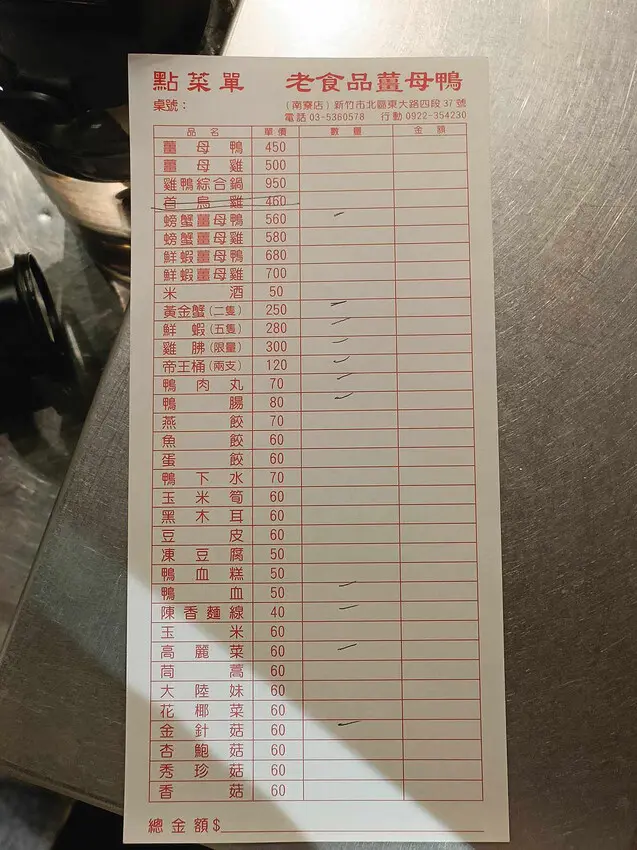 點菜單 老食品薑母鴨
桌號：
（南寮店）新竹市北區東大路四段37號
電話 03-5360578 行動 0922-354230
品名 單價 數量 金額
薑母鴨 450
薑母雞 500
雞鴨綜合鍋 950
首烏雞 460
螃蟹薑母鴨 560
螃蟹薑母雞 580
鮮蝦薑母鴨 680
鮮蝦薑母雞 700
米酒 50
黃金蟹(二隻) 250
鮮蝦(五隻) 280
雞胇(限量) 300
帝王桶(兩支) 120
鴨肉丸 70
鴨腸 80
燕餃 70
魚餃 60
蛋餃 60
鴨下水 70
玉米筍 60
黑木耳 60
豆皮 60
凍豆腐 50
鴨血糕 50
鴨血 50
陳香麵線 40
玉米 60
高麗菜 60
茼蒿 60
大陸妹 60
花椰菜 60
金針菇 60
杏鮑菇 60
秀珍菇 60
香菇 60
總金額$